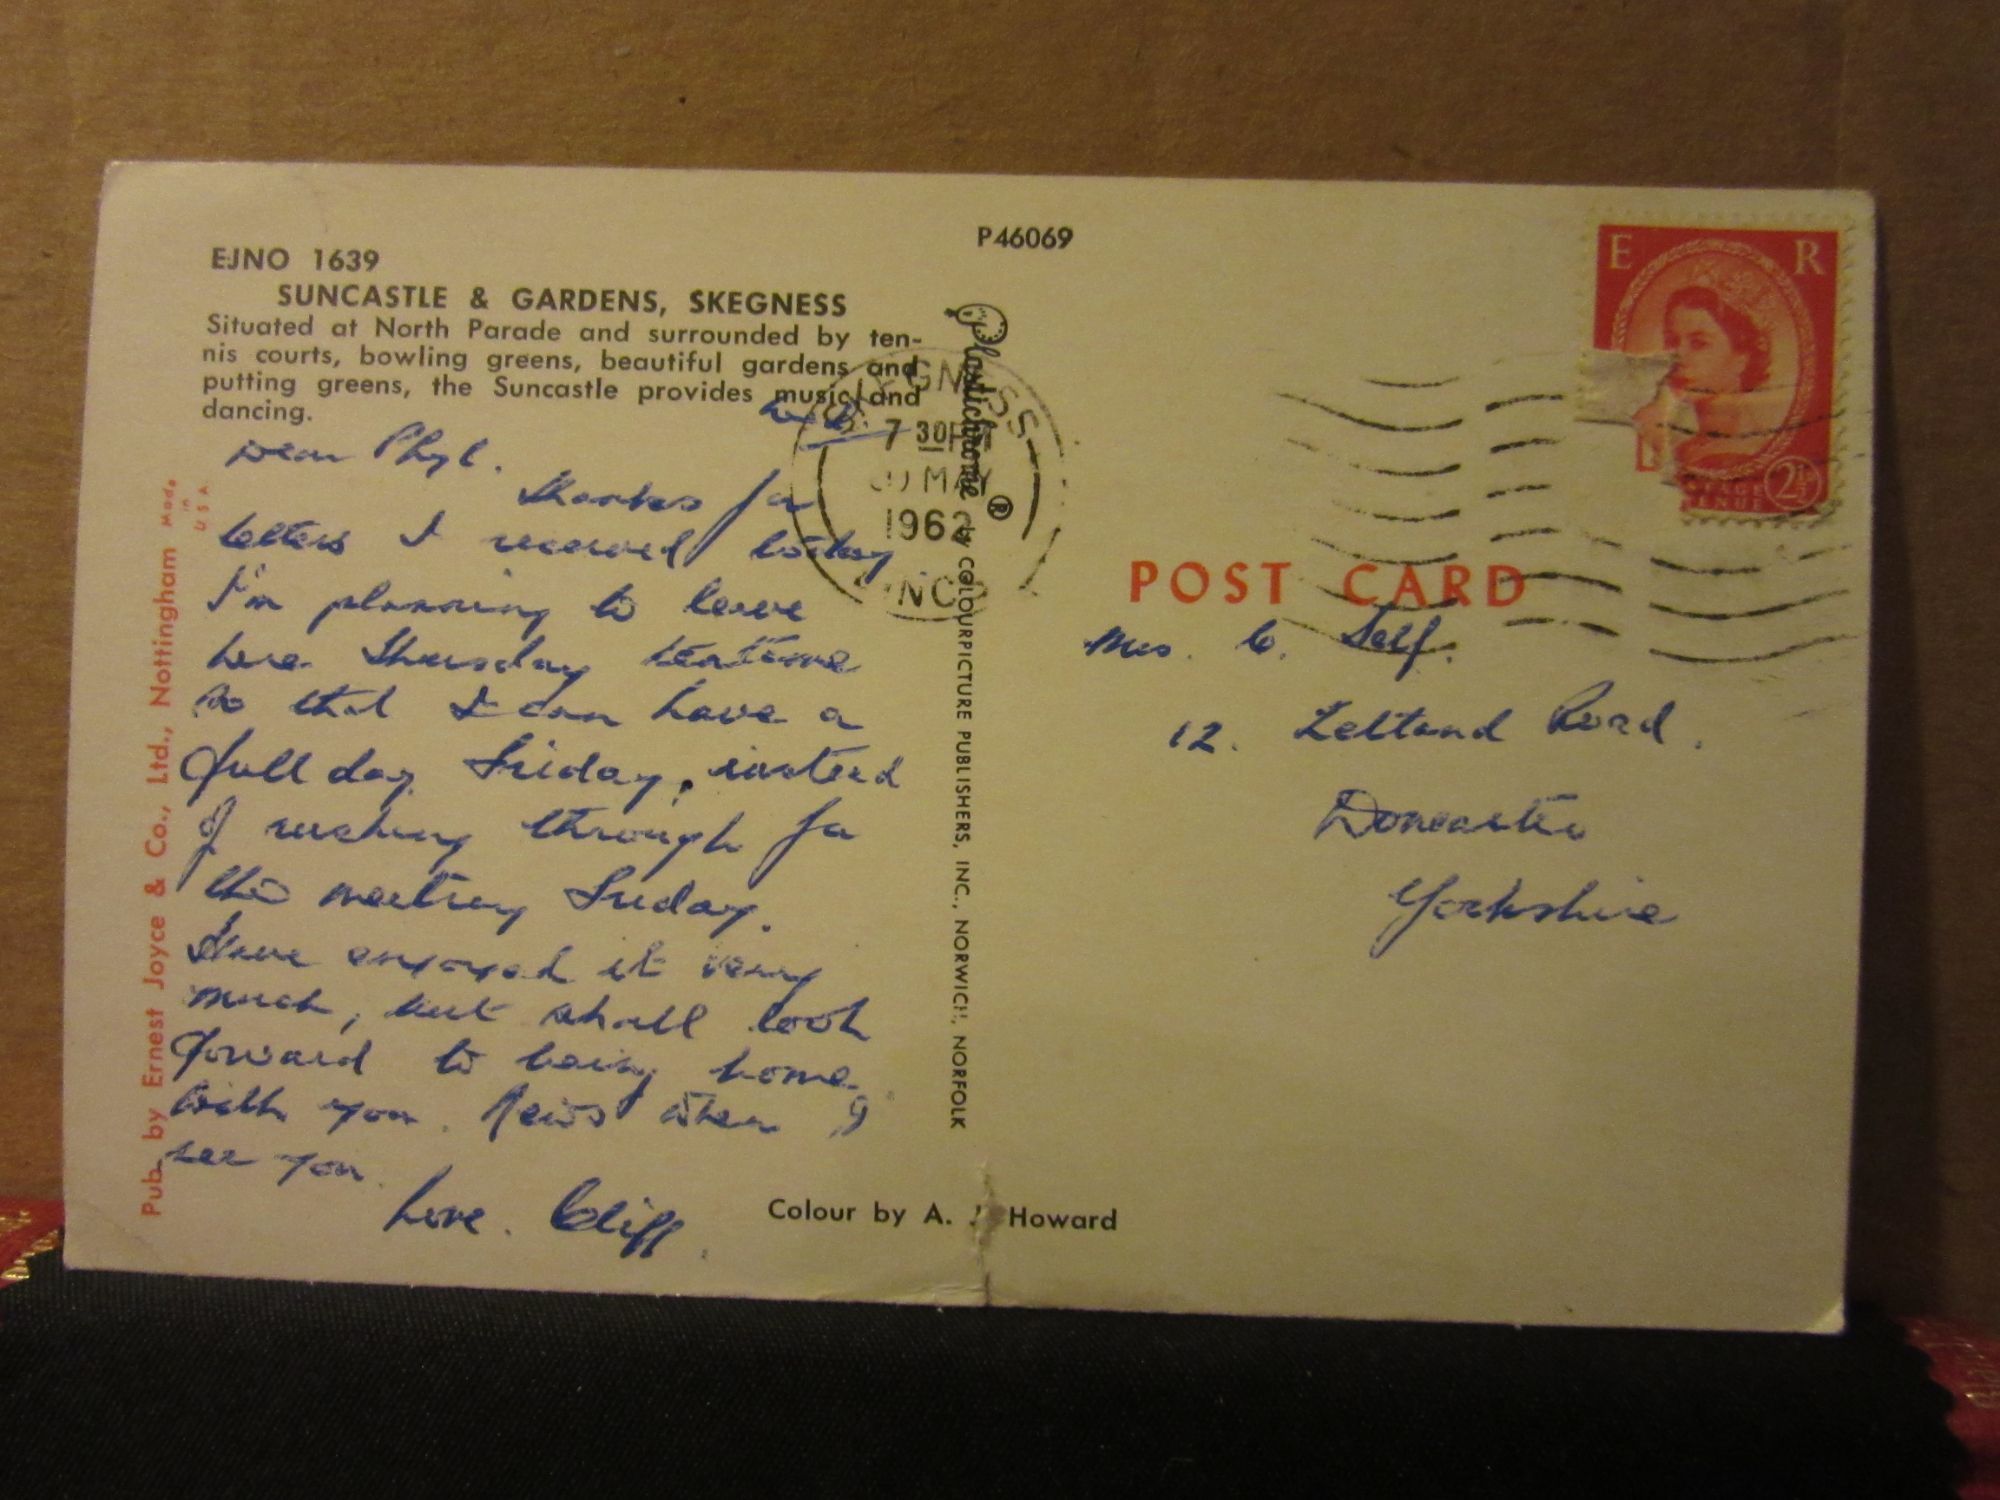 P46069
EJNO 1639
SUNCASTLE & GARDENS, SKEGNESS
Situated at North Parade and surrounded by ten-
nis courts, bowling greens, beautiful gardens and
putting greens, the Suncastle provides music and
dancing.
Dear Phyl.
Thanks for
letters I received today
I'm planning to leave
here Thursday teatime
so that I can have a
full day Friday, instead
of rushing through for
the meeting Friday.
Have enjoyed it very
much, but shall look
forward to being home
with you. News when I
see you.
Love. Cliff.
Pub. by Ernest Joyce & Co., Ltd., Nottingham
Made
in
USA
Plastichrome ® by COLOURPICTURE PUBLISHERS, INC., NORWICH, NORFOLK
Colour by A. Howard
SKEGNESS
7 30 PM
MAY
1962
E R
2½
POST CARD
Mrs. C. Self.
12. Zetland Road.
Doncaster
Yorkshire